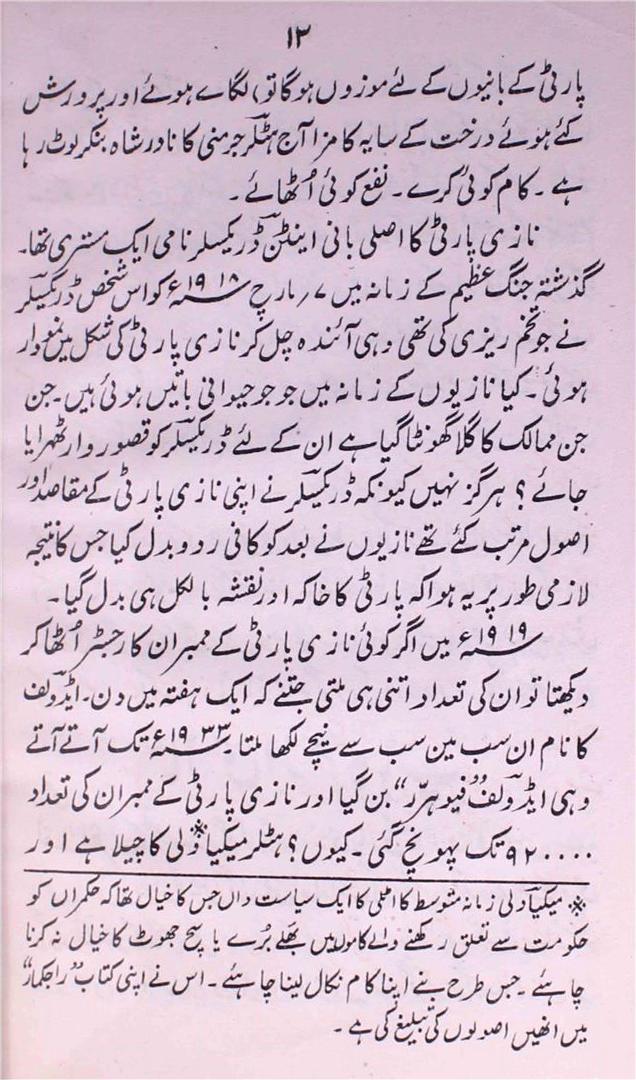 ۱۲
پارٹی کے بانیوں کے لئے موزوں ہوگا تو) لگائے ہوئے اور پرورش
کئے ہوئے درخت کے سایہ کا مزا آج ہٹلر جرمنی کا نادر شاہ بنکر لوٹ رہا
ہے۔ کام کوئی کرے۔ نفع کوئی اُٹھائے۔
نازی پارٹی کا اصلی بانی اینٹن ڈریکسلر نامی ایک مستری تھا۔
گذشتہ جنگ عظیم کے زمانہ میں ۷؍مارچ ۱۹۱۸ء کو اس شخص ڈریکسلر
نے جو تخم ریزی کی تھی وہی آئندہ چل کر نازی پارٹی کی شکل میں نمودار
ہوئی۔ کیا نازیوں کے زمانہ میں جو جو حیوانی باتیں ہوئی ہیں۔ جن
جن ممالک کا گلا گھونٹا گیا ہے ان کے لئے ڈریکسلر کو قصور وار ٹھہرایا
جائے؟ ہرگز نہیں کیونکہ ڈریکسلر نے اپنی نازی پارٹی کے مقاصد اور
اصول مرتب کئے تھے نازیوں نے بعد کو کافی ردو بدل کیا جس کا نتیجہ
لازمی طور پر یہ ہوا کہ پارٹی کا خاکہ اور نقشہ بالکل ہی بدل گیا۔
۱۹۱۹ء میں اگر کوئی نازی پارٹی کے ممبران کا رجسٹر اُٹھا کر
دیکھتا تو ان کی تعداد اتنی ہی ملتی جتنے کہ ایک ہفتہ میں دن۔ ایڈولف
کا نام ان سب مین سب سے نیچے لکھا ملتا۔ ۱۹۳۳ء تک آتے آتے
وہی ایڈولف ”فیوہرر“ بن گیا اور نازی پارٹی کے ممبران کی تعداد
۹۲۰۰۰۰ تک پہونچ گئی۔ کیوں؟ ہٹلر میکیاولی※ کا چیلا ہے اور
※ میکیاولی زمانہ متوسط کا اٹلی کا ایک سیاست داں جس کا خیال تھا کہ حکمراں کو
حکومت سے تعلق رکھنے والے کاموں میں بھلے بُرے یا سچ جھوٹ کا خیال نہ کرنا
چاہئے۔ جس طرح بنے اپنا کام نکال لینا چاہئے۔ اس نے اپنی کتاب ”راجکمار“
میں انھیں اصولوں کی تبلیغ کی ہے۔